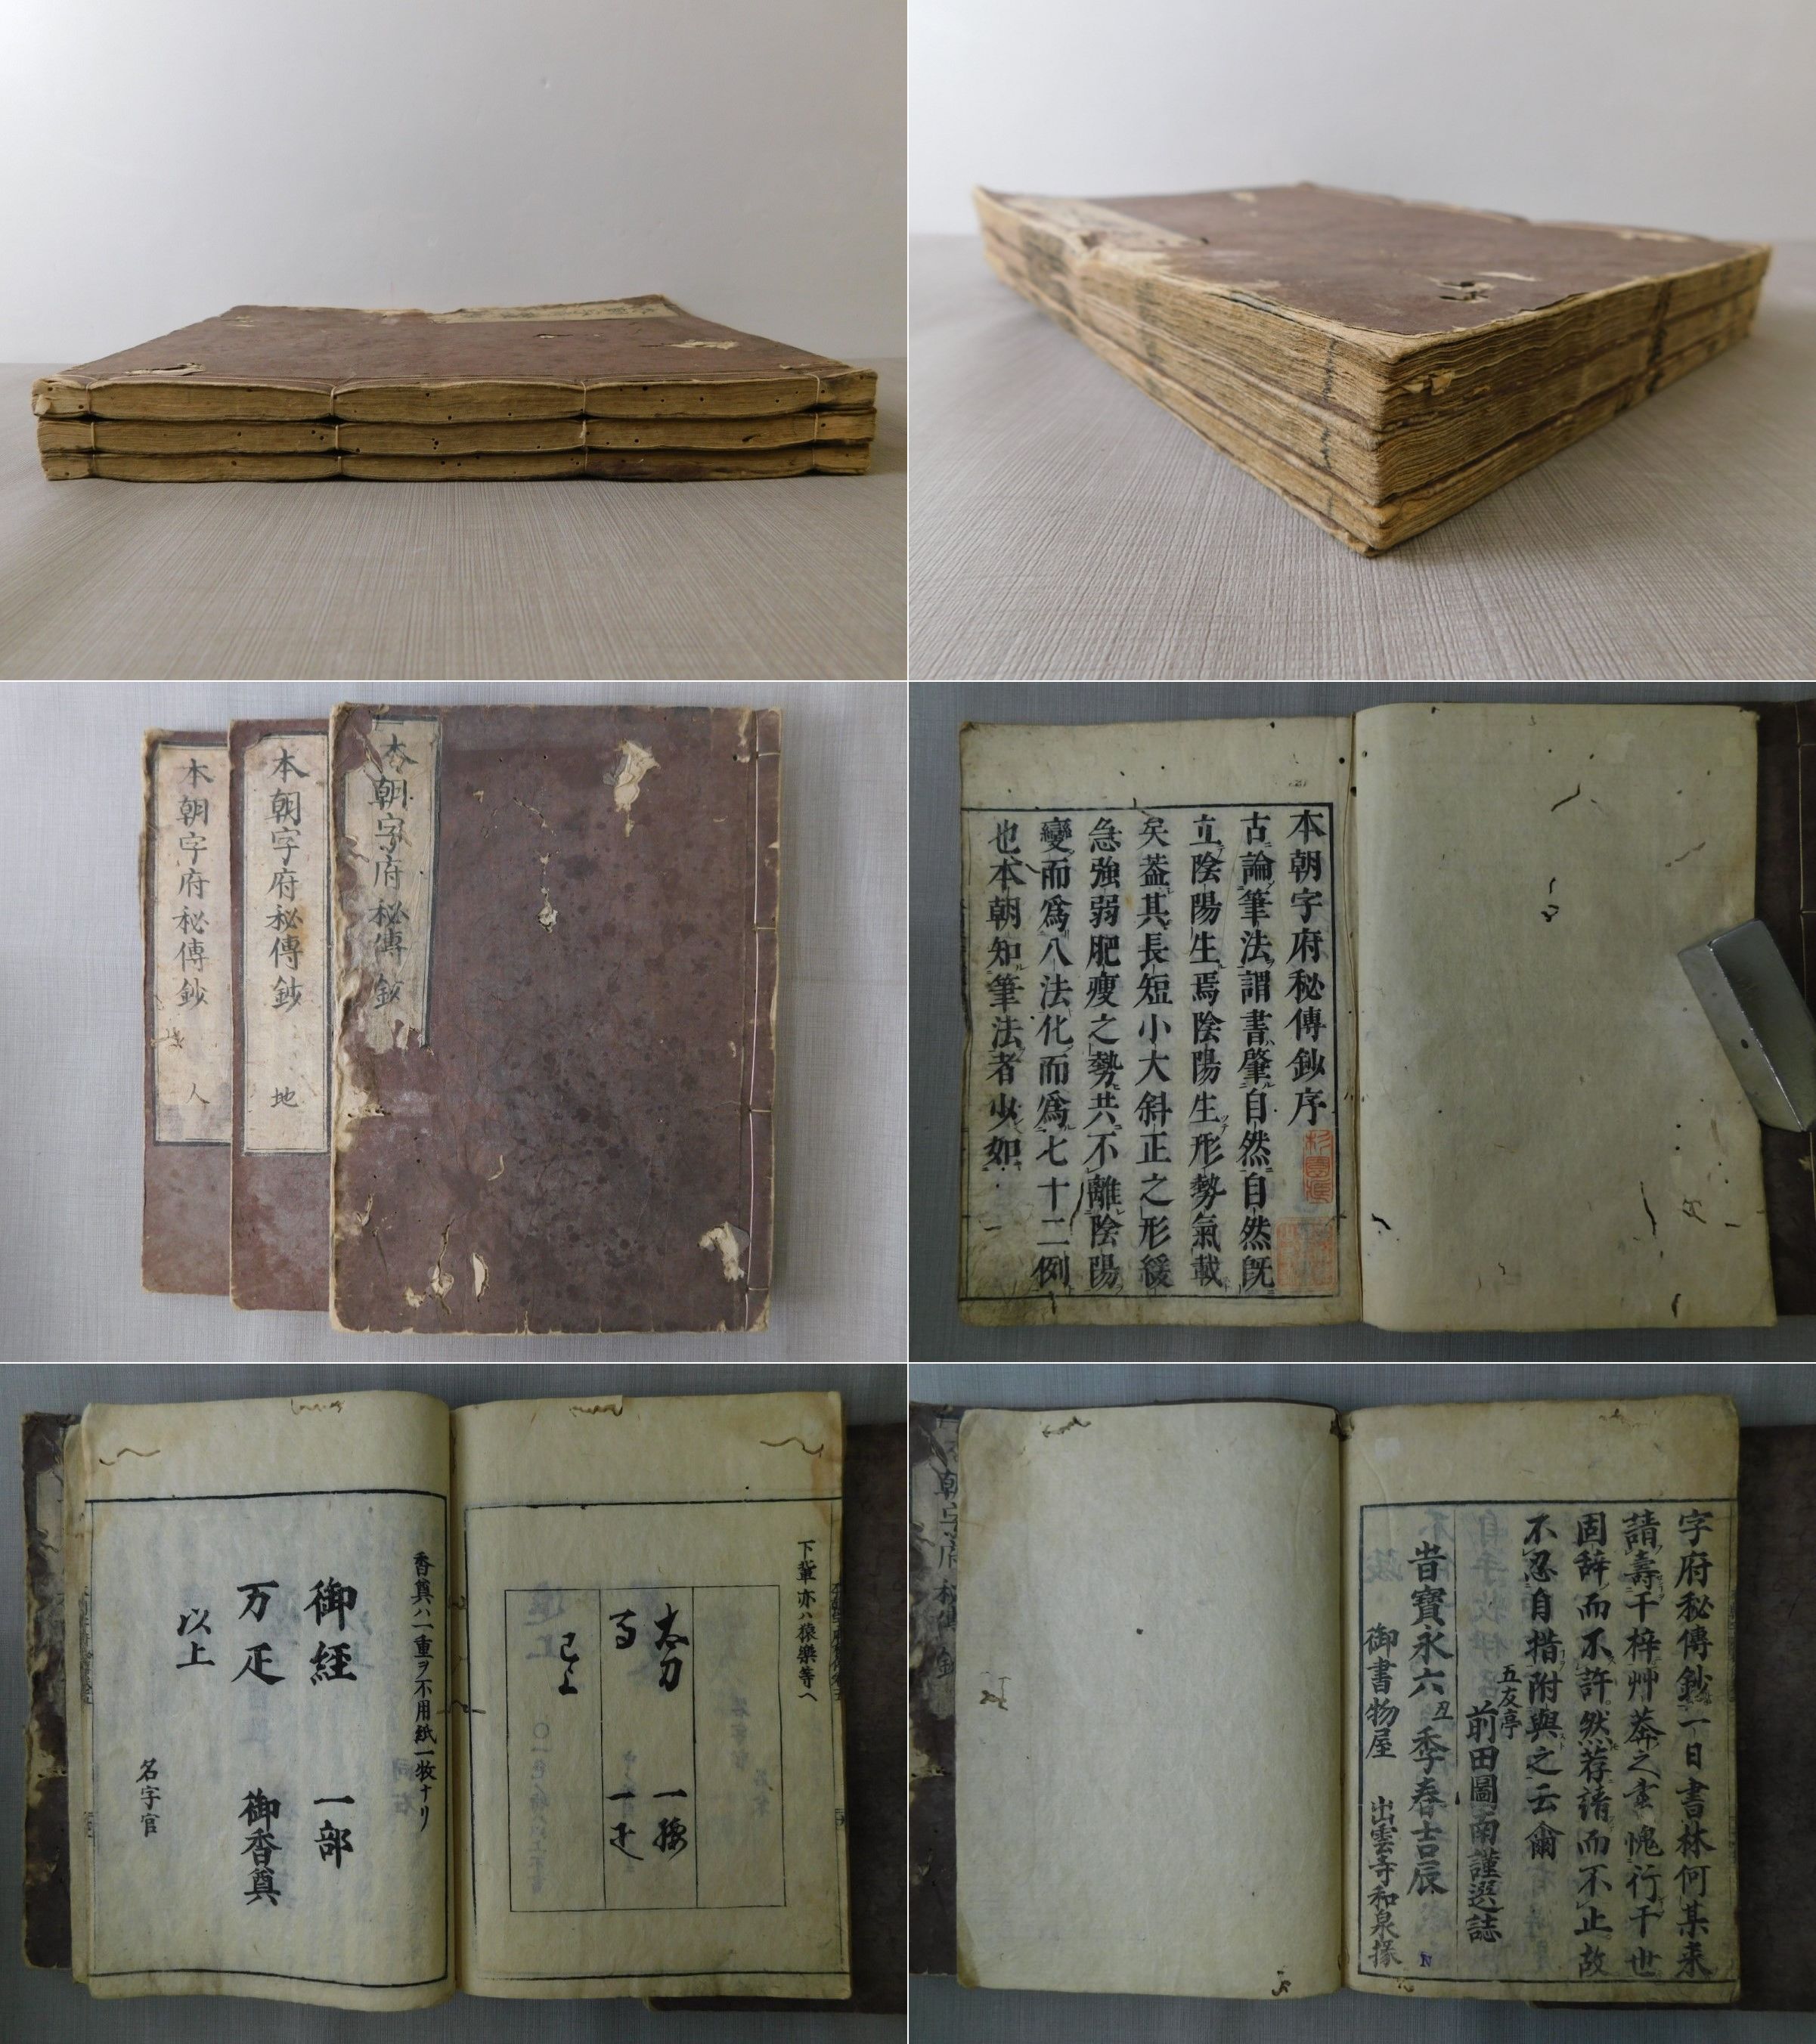 本朝字府秘傳鈔
本朝字府秘傳鈔 地
本朝字府秘傳鈔 人
本朝字府秘傳鈔序
古論筆法謂書肇自然自然既
立陰陽生焉陰陽生形勢氣載
矣蓋其長短小大斜正之形緩
急強弱肥瘦之勢共不離陰陽
變而爲八法化而爲七十二例
也本朝知筆法者少如
下輩亦ハ猿樂等へ
太刀 一腰
馬 一疋
已上
香奠ハ一重ヲ不用紙一枚ナリ
御経 一部
万疋 御香奠
以上
名字官
字府秘傳鈔一日書林何某来
請壽于梓艸莽之言愧行于世
固辞而不許然荐請而不止故
不忍自措附與之云爾
五友亭
前田圖南謹選誌
昔寶永六丑季春吉辰
御書物屋 出雲寺和泉掾